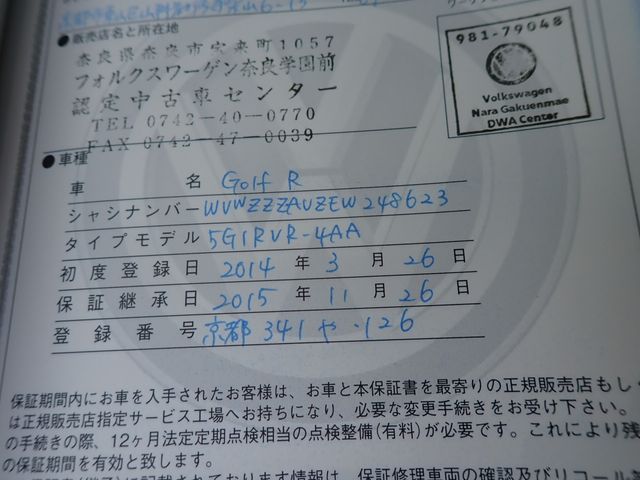 ●販売店名と所在地
奈良県奈良市宝来町1057
フォルクスワーゲン奈良学園前
認定中古車センター
TEL 0742-40-0770
FAX 0742-47-0039
981-79048
Volkswagen
Nara Gakuenmae
DWA Center
●車種
車名 Golf R
シャシナンバー WVWZZZAUZEW248623
タイプモデル 5G1RVR-4AA
初度登録日 2014年3月26日
保証継承日 2015年11月26日
登録番号 京都 341 や ・126
保証期間内にお車を入手されたお客様は、お車と本保証書を最寄りの正規販売店もしく
は正規販売店指定サービス工場へお持ちになり、必要な変更手続きをお受け下さい。
の手続きの際、12ヶ月法定定期点検相当の点検整備(有料)が必要です。これにより残
の保証期間を有効と致します。
に記載されております情報は、保証修理車両の確認及びリコール